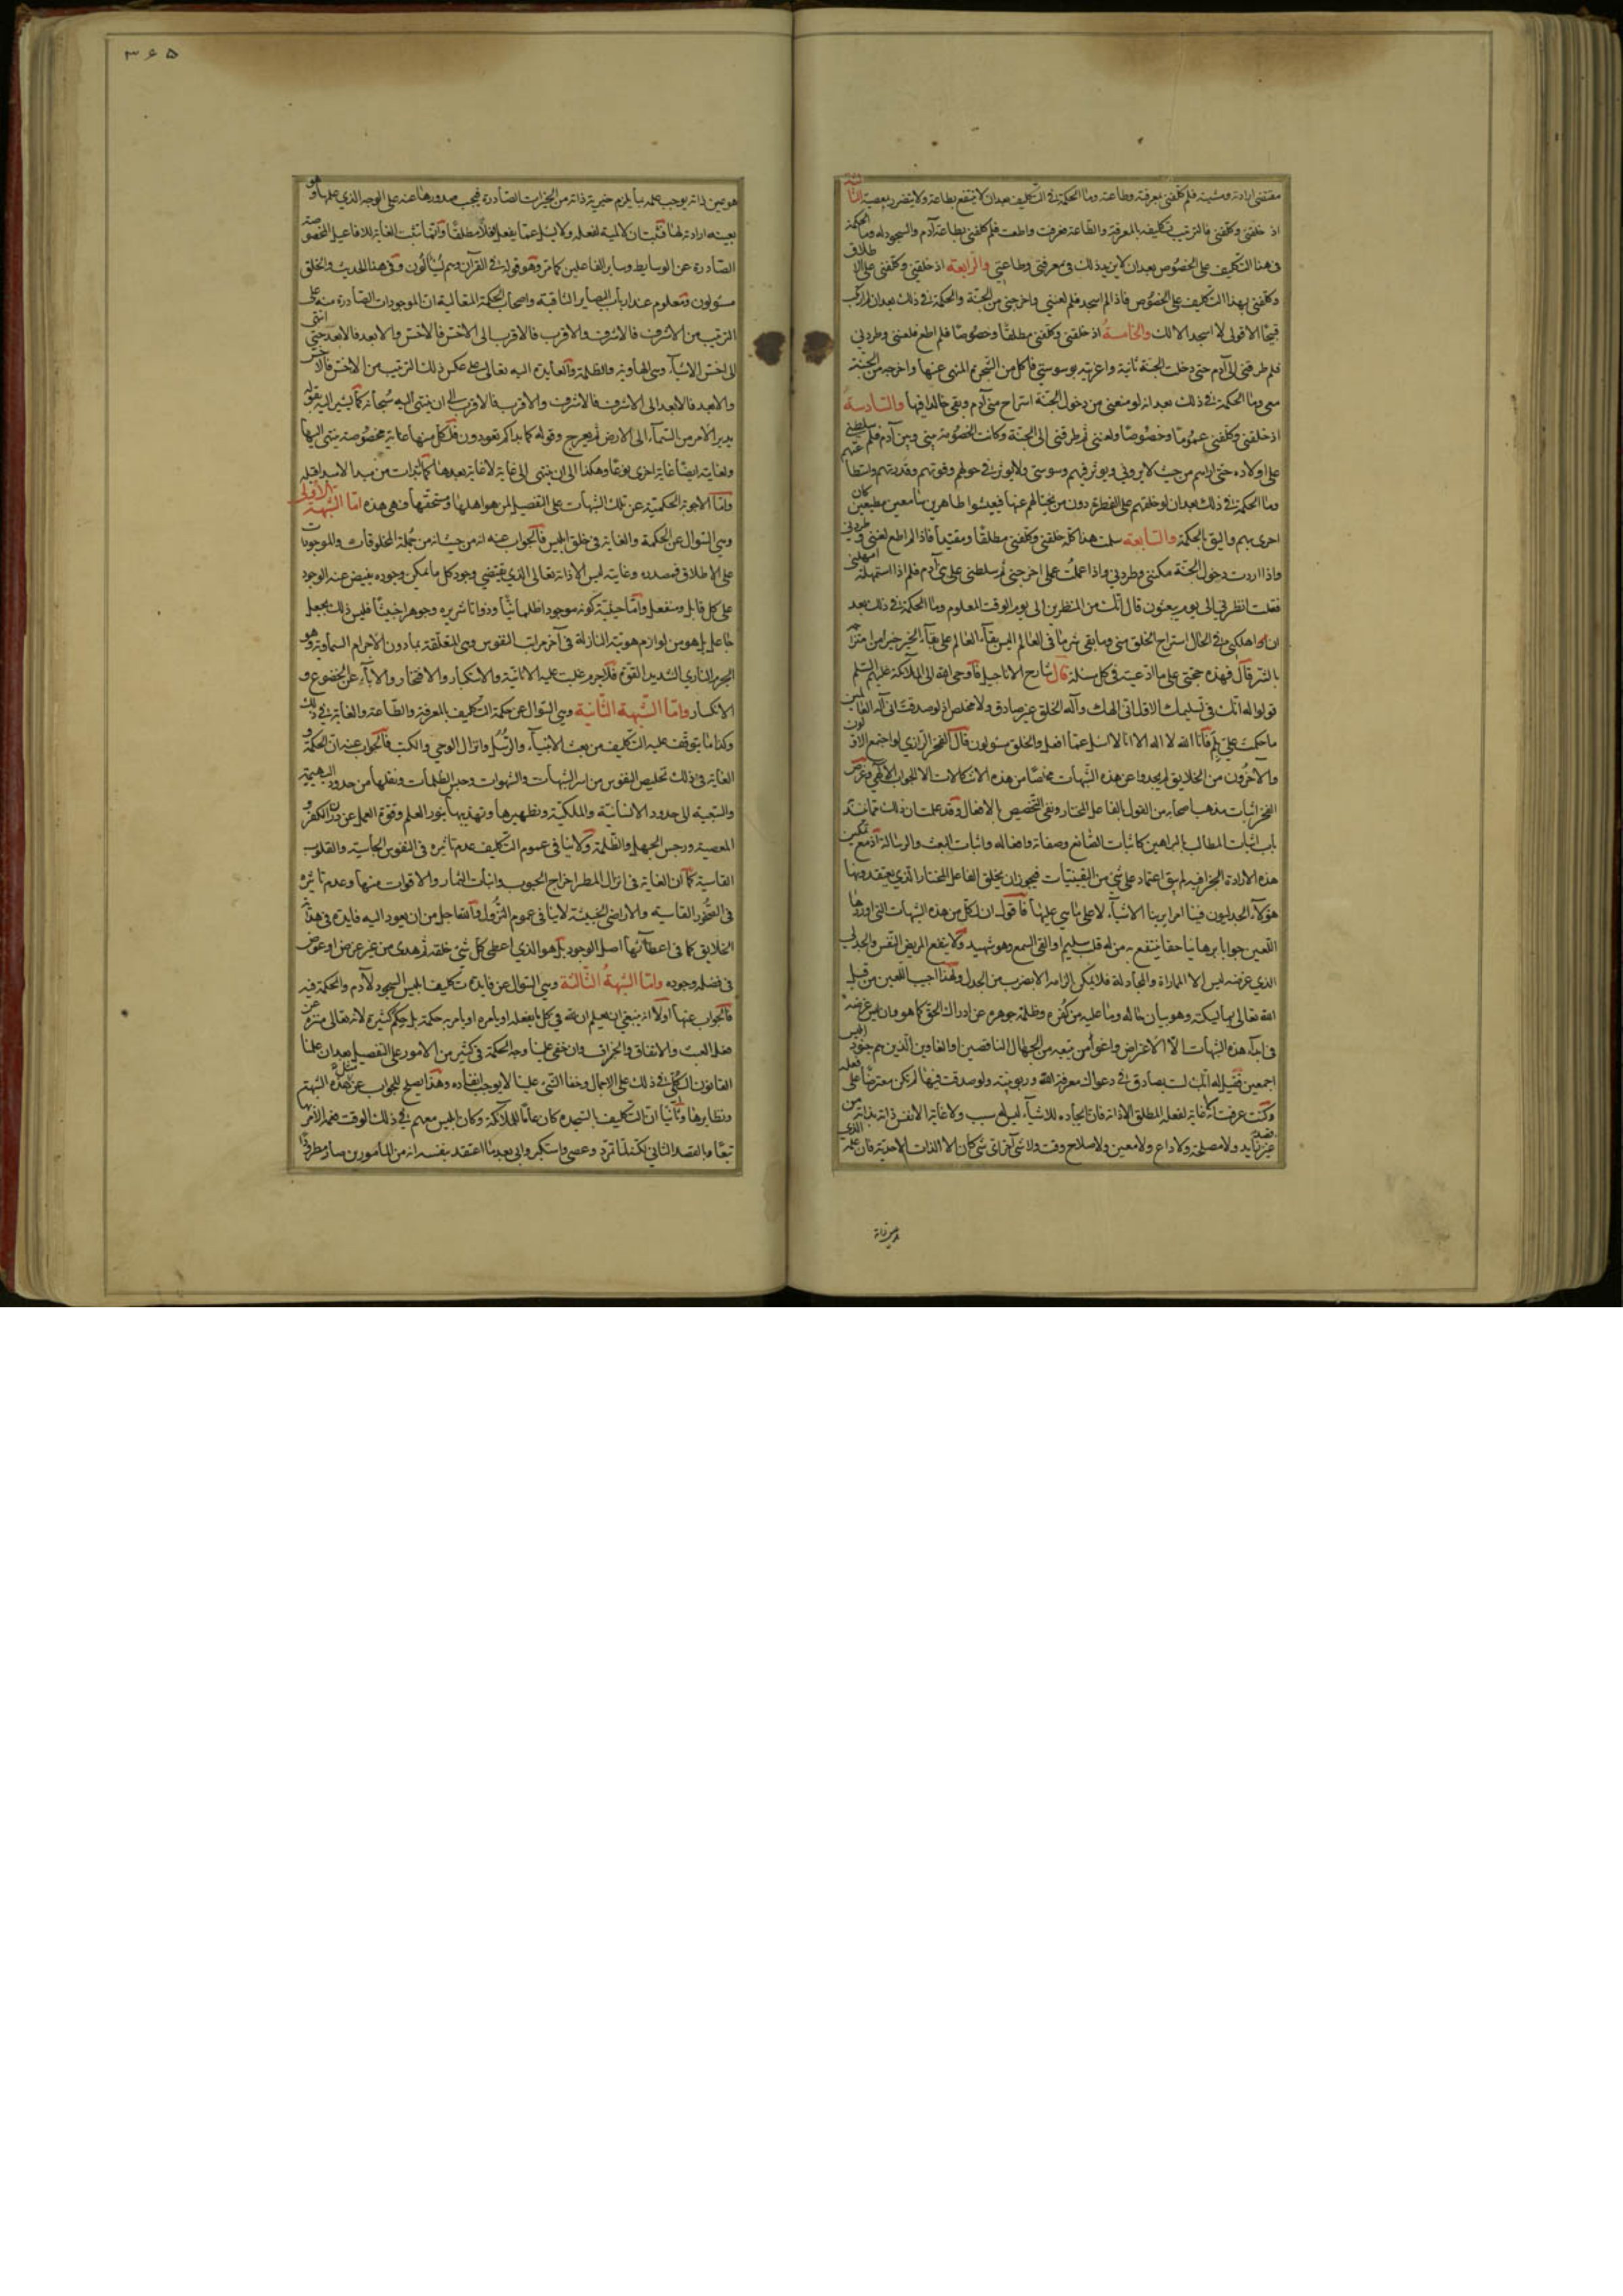 مقتضى ارادته ومشيته فلم كلفنى بمعرفته وطاعته وما الحكمة فى التكليف بعد ان لا ينتفع بطاعة ولا يتضرر بمعصية الثالث
اذ خلقنى وكلفنى فالتزمت تكليفه بالمعرفة والطاعة فعرفت واطعت فلم كلفنى بطاعة آدم والسجود له وما الحكمة
فى هذا التكليف على الخصوص بعد ان لا يزيد ذلك فى معرفتى وطاعتى والرابعة اذ خلقنى وكلفنى على الاطلاق
وكلفنى بهذا التكليف على الخصوص فاذا لم اسجد فلم لعننى واخرجنى من الجنة والحكمة فى ذلك بعد ان لم ارتكب
قبيحا الا قولى لا اسجد الا لك والخامسة اذ خلقنى وكلفنى مطلقا وخصوصا فلم اطع فلعننى وطردنى
فلم طرقنى الى آدم حتى دخلت الجنة ثانية وغررته بوسوستى فاكل من الشجرة المنهى عنها واخرجه من الجنة
معى وما الحكمة فى ذلك بعد ان لو منعنى من دخول الجنة استراح منى آدم وبقى خالدا فيها والسادسة
اذ خلقنى وكلفنى عموما وخصوصا ولعننى ثم طرقنى الى الجنة وكانت الخصومة بينى وبين آدم فلم سلطنى
على اولاده حتى اراهم من حيث لا يرونى ويؤثر فيهم وسوستى ولا يؤثر فى حولهم وقوتهم وقدرتهم واستطاعتهم
وما الحكمة فى ذلك بعد ان لو خلقهم على الفطرة دون من يحتالهم عنها فيعيشوا طاهرين سامعين مطيعين كان
احرى بهم واليق بالحكمة والسابعة سلمت هذا كله خلقنى وكلفنى مطلقا ومقيدا فاذا لم اطع لعننى وطردنى
واذا اردت دخول الجنة مكننى وطرقنى واذا عملت عملى اخرجنى ثم سلطنى على بنى آدم فلم اذا استمهلته امهلنى
فقلت انظرنى الى يوم يبعثون قال انك من المنظرين الى يوم الوقت المعلوم وما الحكمة فى ذلك بعد
ان لو اهلكنى فى الحال استراح الخلق منى وما بقى شر ما فى العالم اليس بقاء العالم على نظام الخير خيرا من امتزاجه
بالشر قال فهذه حجتى على ما ادعيته فى كل مسئلة قال شارح الاناجيل فاوحى الله الى الملائكة عليهم السلم
قولوا له انك فى تسليمك الاول انى الهك واله الخلق غير صادق ولا مخلص اذ لو صدقت انى اله العالمين
ما حكمت على بلم فانا الله لا اله الا انا لا اسئل عما افعل والخلق مسئولون قال الفخر الرازى لو اجتمع الاولون
والآخرون من الخلايق لم يجدوا عن هذه الشبهات مخلصا من هذه الاشكالات الا الجواب الالهى وغرض
الفخر اثبات مذهب اصحابه من القول بالفاعل المختار ونفى التخصيص بالافعال وقد علمت ان ذلك مما ينسد
باب اثبات المطالب بالبراهين كاثبات الصانع وصفاته وافعاله واثبات البعث والرسالة اذ مع تمكين
هذه الارادة الجزافية لم يبق اعتماد على شئ من اليقينيات فيجوز ان يخلق الفاعل المختار الذى يعتقدونها
هؤلاء الجدليون فينا امرا يرينا الاشياء لا على ما هى عليها فاقول ان لكل من هذه الشبهات التى اوردها
اللعين جوابا برهانيا حقا ينتفع به من له قلب سليم او القى السمع وهو شهيد ولا ينفع المريض النفس والجدلى
الذى غرضه ليس الا المماراة والمجادلة فلا يمكن الزامه الا بضرب من الجدل ولهذا اجيب اللعين من قبل
الله تعالى بما يسكته وهو بيان حاله وما عليه من كفره وظلمة جوهره عن ادراك الحق كما هو وان ليس غرضه
فى ابداء هذه الشبهات الا الاعتراض واغواء من تبعه من الجهال الناقصين او الغاوين الذين هم جنود ابليس
اجمعين فقيل له انك لست بصادق فى دعواك معرفة الله وربوبيته ولو صدقت فيها لم تكن معترضا على فعله
وكنت عرفت انه لا غاية لفعله المطلق الا ذاته فان ايجاده للاشياء ليس له سبب ولا غاية الا نفس ذاته بذاته من
غير قصد زايد ولا مصلحة ولا داع ولا معين ولا صلاح وقت ولا شى آخر اى شى كان الا الذات الاحدية فان علمه الذى
هو عين ذاته يوجب علمه بما يلزم خيرية ذاته من الخيرات الصادرة فيجب صدورها عنه على الوجه الذى علمها وهو
بعينه ارادته لها فثبت ان لا لمية لفعله ولا يسئل عما يفعل فعلا مطلقا وانما تثبت الغاية للافاعيل المخصوصة
الصادرة عن الوسايط وساير الفاعلين كما مر وهو قوله فى القرآن وهم يسألون وفى هذا الحديث والخلق
مسئولون ومعلوم عند ارباب البصاير الثاقبة واصحاب الحكمة المتعالية ان الموجودات الصادرة منه على
الترتيب من الاشرف فالاشرف والاقرب فالاقرب الى الاخس فالاخس والابعد فالابعد حتى انتهى
الى اخس الاشياء وهى الهاوية والظلمة والعايدة اليه تعالى على عكس ذلك الترتيب من الاخس فالاخس
والابعد فالابعد الى الاشرف فالاشرف والاقرب فالاقرب الى ان ينتهى اليه سبحانه كما يشير اليه بقوله
يدبر الامر من السماء الى الارض ثم يعرج وقوله كما بداكم تعودون فلكل منها غاية مخصوصة ينتهى اليها
ولغايته ايضا غاية اخرى نوعا وهكذا الى ان ينتهى الى غاية لا غاية بعدها كما ابتدات من مبدا لا مبدا قبله
واما الاجوبة الحكمية عن تلك الشبهات على التفصيل لمن هو اهلها ومستحقها فهى هذه اما الشبهة الاولى
وهى السؤال عن الحكمة والغاية فى خلق ابليس فالجواب عنه انه من حيث انه من جملة المخلوقات والموجودات
على الاطلاق فمصدره وغايته ليس الا ذاته تعالى الذى يقتضى وجود كل ما يمكن وجوده بفيض عنه الوجود
على كل قابل ومنفعل واما حيثية كونه موجودا ظلمانيا وذواتا شريرة وجوهرا خبيثا فليس ذلك بجعل
جاعل بل هو من لوازم هويته النازلة فى آخر مراتب النفوس وهى المتعلقة بما دون الاجرام السماوية وهو
الجرم النارى الشديد القوة فلا جرم غلبت عليه الانانية والاستكبار والافتخار والاباء عن الخضوع و
الانكسار واما الشبهة الثانية وهى السؤال عن حكمة التكليف بالمعرفة والطاعة والغاية فى ذلك
وكذا ما يتوقف عليه التكليف من بعث الانبياء والرسل وانزال الوحى والكتب فالجواب عنه ان الحكمة و
الغاية فى ذلك تخليص النفوس من اسر الشبهات والشهوات وحبس الظلمات ونقلها من حدود البهيمية
والسبعية الى حدود الانسانية والملكية وتطهيرها وتهذيبها بنور العلم وقوة العمل عن درن الكفر و
المعصية ورجس الجهل والظلمة ولا ينافى عموم التكليف عدم تاثيره فى النفوس الجاسية والقلوب
القاسية كما ان الغاية فى انزال المطر اخراج الحبوب وانبات الثمار والاقوات منها وعدم تاثيره
فى الصخور القاسية والاراضى الخبيثة لا ينافى عموم النزول والله اجل من ان يعود اليه فايدة فى هداية
الخلايق كما فى اعطائها اصل الوجود بل هو الذى اعطى كل شئ خلقه ثم هدى من غير غرض او عوض
فى فضله وجوده واما الشبهة الثالثة وهى السؤال عن فايدة تكليف ابليس السجود لآدم والحكمة فيه
فالجواب عنها اولا انه ينبغى ان يعلم ان لله فى كل ما يفعله او يامره او يامر به حكمة بل حكم كثيرة لانه تعالى منزه عن
فعل العبث والاتفاق والجزاف وان خفى علينا وجه الحكمة فى كثير من الامور على التفصيل بعد ان علمنا
القانون الكلى فى ذلك على الاجمال وخفاء الشئ علينا لا يوجب انتفاءه وهذا يصلح للجواب عن هذه الشبهة
ونظايرها وثانيا ان التكليف بالسجدة كان عاما للملائكة وكان ابليس معهم فى ذلك الوقت فعمه الامر بها
تبعا وبالقصد الثانى لكنه لما تمرد وعصى واستكبر وابى بعد ما اعتقد بنفسه انه من المامورين صار مطرودا